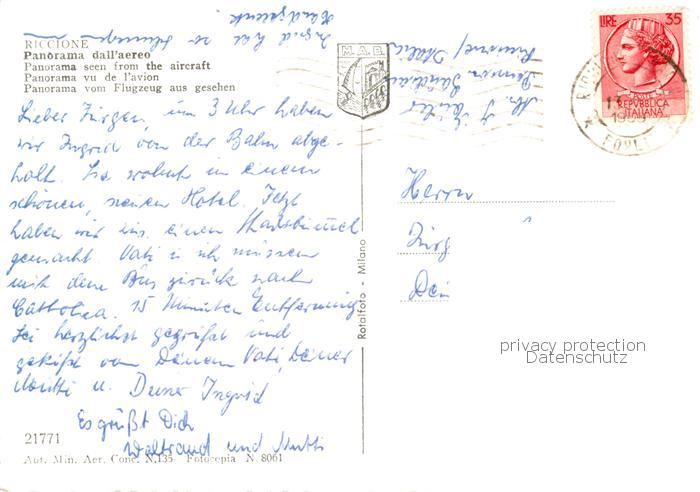 RICCIONE
Panorama dall'aereo
Panorama seen from the aircraft
Panorama vu de l'avion
Panorama vom Flugzeug aus gesehen
Lieber Jürgen, um 3 Uhr haben
wir Ingrid von der Bahn abge-
holt. Sie wohnt in einem
schönen, neuen Hotel. Jetzt
haben wir einen Stadtbummel
gemacht. Vati u. ich müssen
mit dem Bus zurück nach
Cattolica. 15 Minuten Entfernung
Sei herzlichst gegrüßt und
geküßt von Deinem Vati, Deiner
Mutti u. Deiner Ingrid
Es grüßt Dich
Waltraud und Mutti
21771
Aut. Min. Aer. Conc. N.135- Fotocepia N 8061
Rotalfoto - Milano
M.A.R.
Ingrid hat so
Rimini/Italia
Pension
LIRE 35
REPVBBLICA
ITALIANA
Herrn
Jürg
Dein
privacy protection
Datenschutz